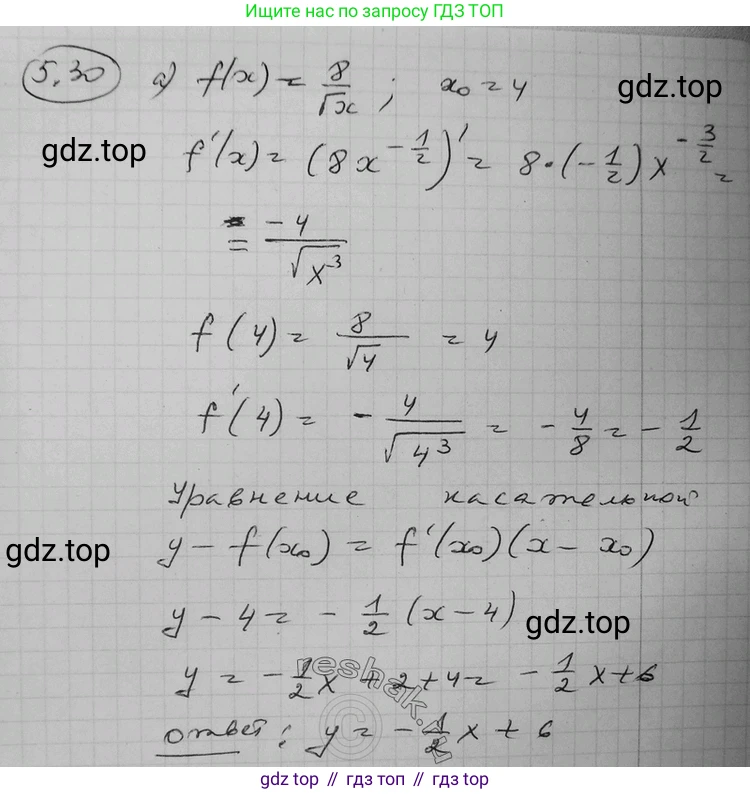 Ищите нас по запросу ГДЗ ТОП
5.30 а) f(x) = 8/√x ; x₀ = 4
gdz.top
gdz.top
f'(x) = (8x^(-1/2))' = 8·(-1/2)x^(-3/2) =
= -4/√x^3
f(4) = 8/√4 = 4
f'(4) = -4/√4^3 = -4/8 = -1/2
Уравнение касательной
y - f(x₀) = f'(x₀)(x - x₀)
gdz.top
y - 4 = -1/2 (x - 4)
gdz.top
y = -1/2 x + 2 + 4 = -1/2 x + 6
reshak.ru
©
ответ: y = -1/2 x + 6
gdz.top // гдз топ // gdz.top